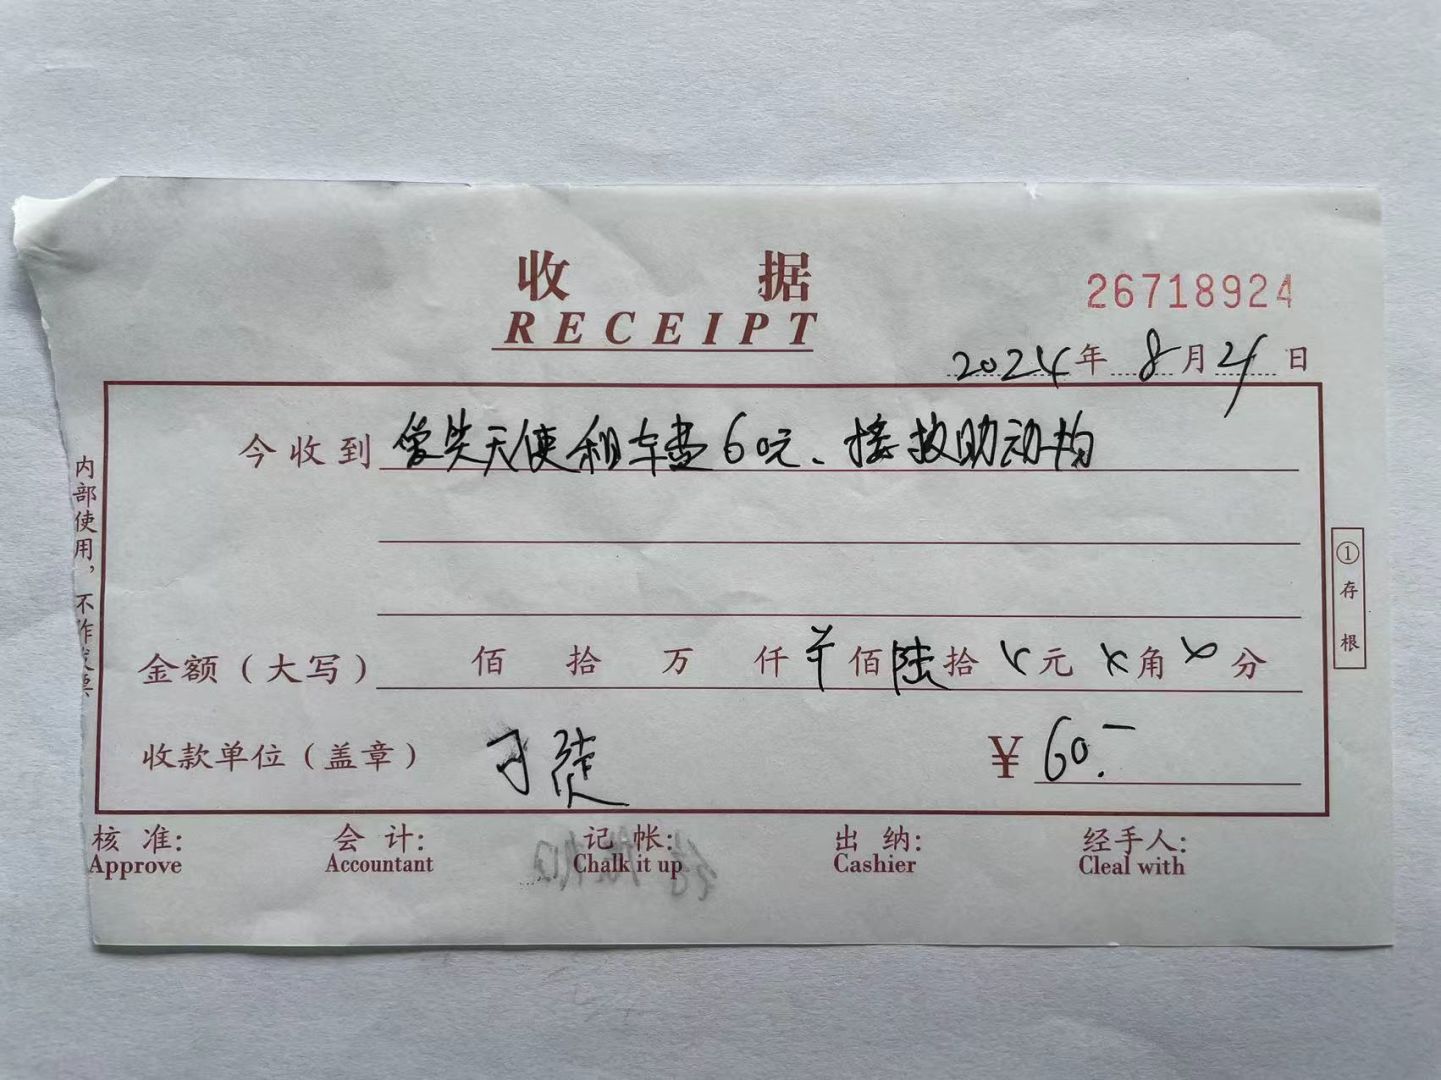 收据
RECEIPT
26718924
2024年8月4日
今收到 天使租车费60元、接救助动物
金额（大写） 佰 拾 万 仟 佰陆拾 ×元 ×角 × 分
收款单位（盖章） ¥ 60.-
核 准: 会 计: 记 帐: 出 纳: 经手人:
Approve Accountant Chalk it up Cashier Cleal with
内部使用，不作发票
①存根